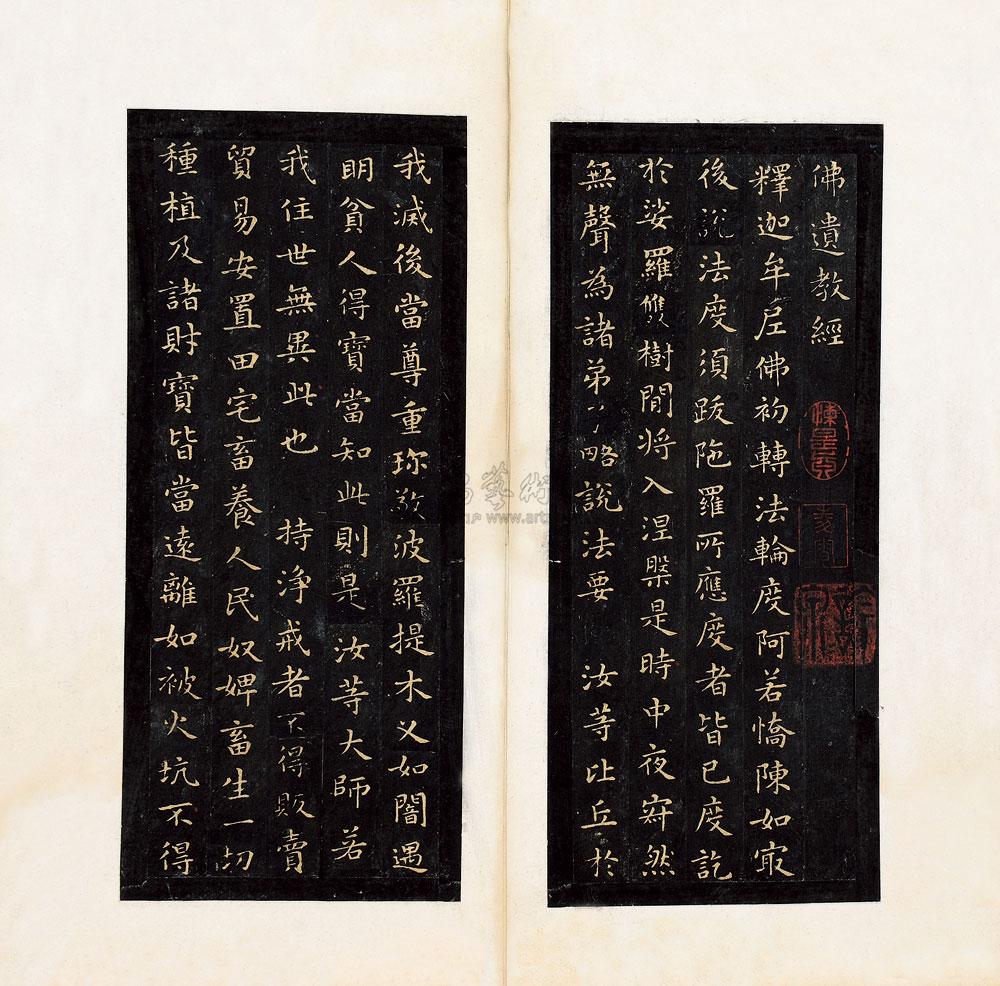 佛遺教經
釋迦牟尼佛初轉法輪度阿若憍陳如寂
後說法度須跋陁羅所應度者皆已度訖
於娑羅雙樹間將入涅槃是時中夜寂然
無聲為諸弟子略說法要 汝等比丘於
我滅後當尊重珎敬波羅提木叉如闇遇
明貧人得寶當知此則是汝等大師若
我住世無異此也 持淨戒者不得販賣
貿易安置田宅畜養人民奴婢畜生一切
種植及諸財寶皆當遠離如被火坑不得
藝術
www.art